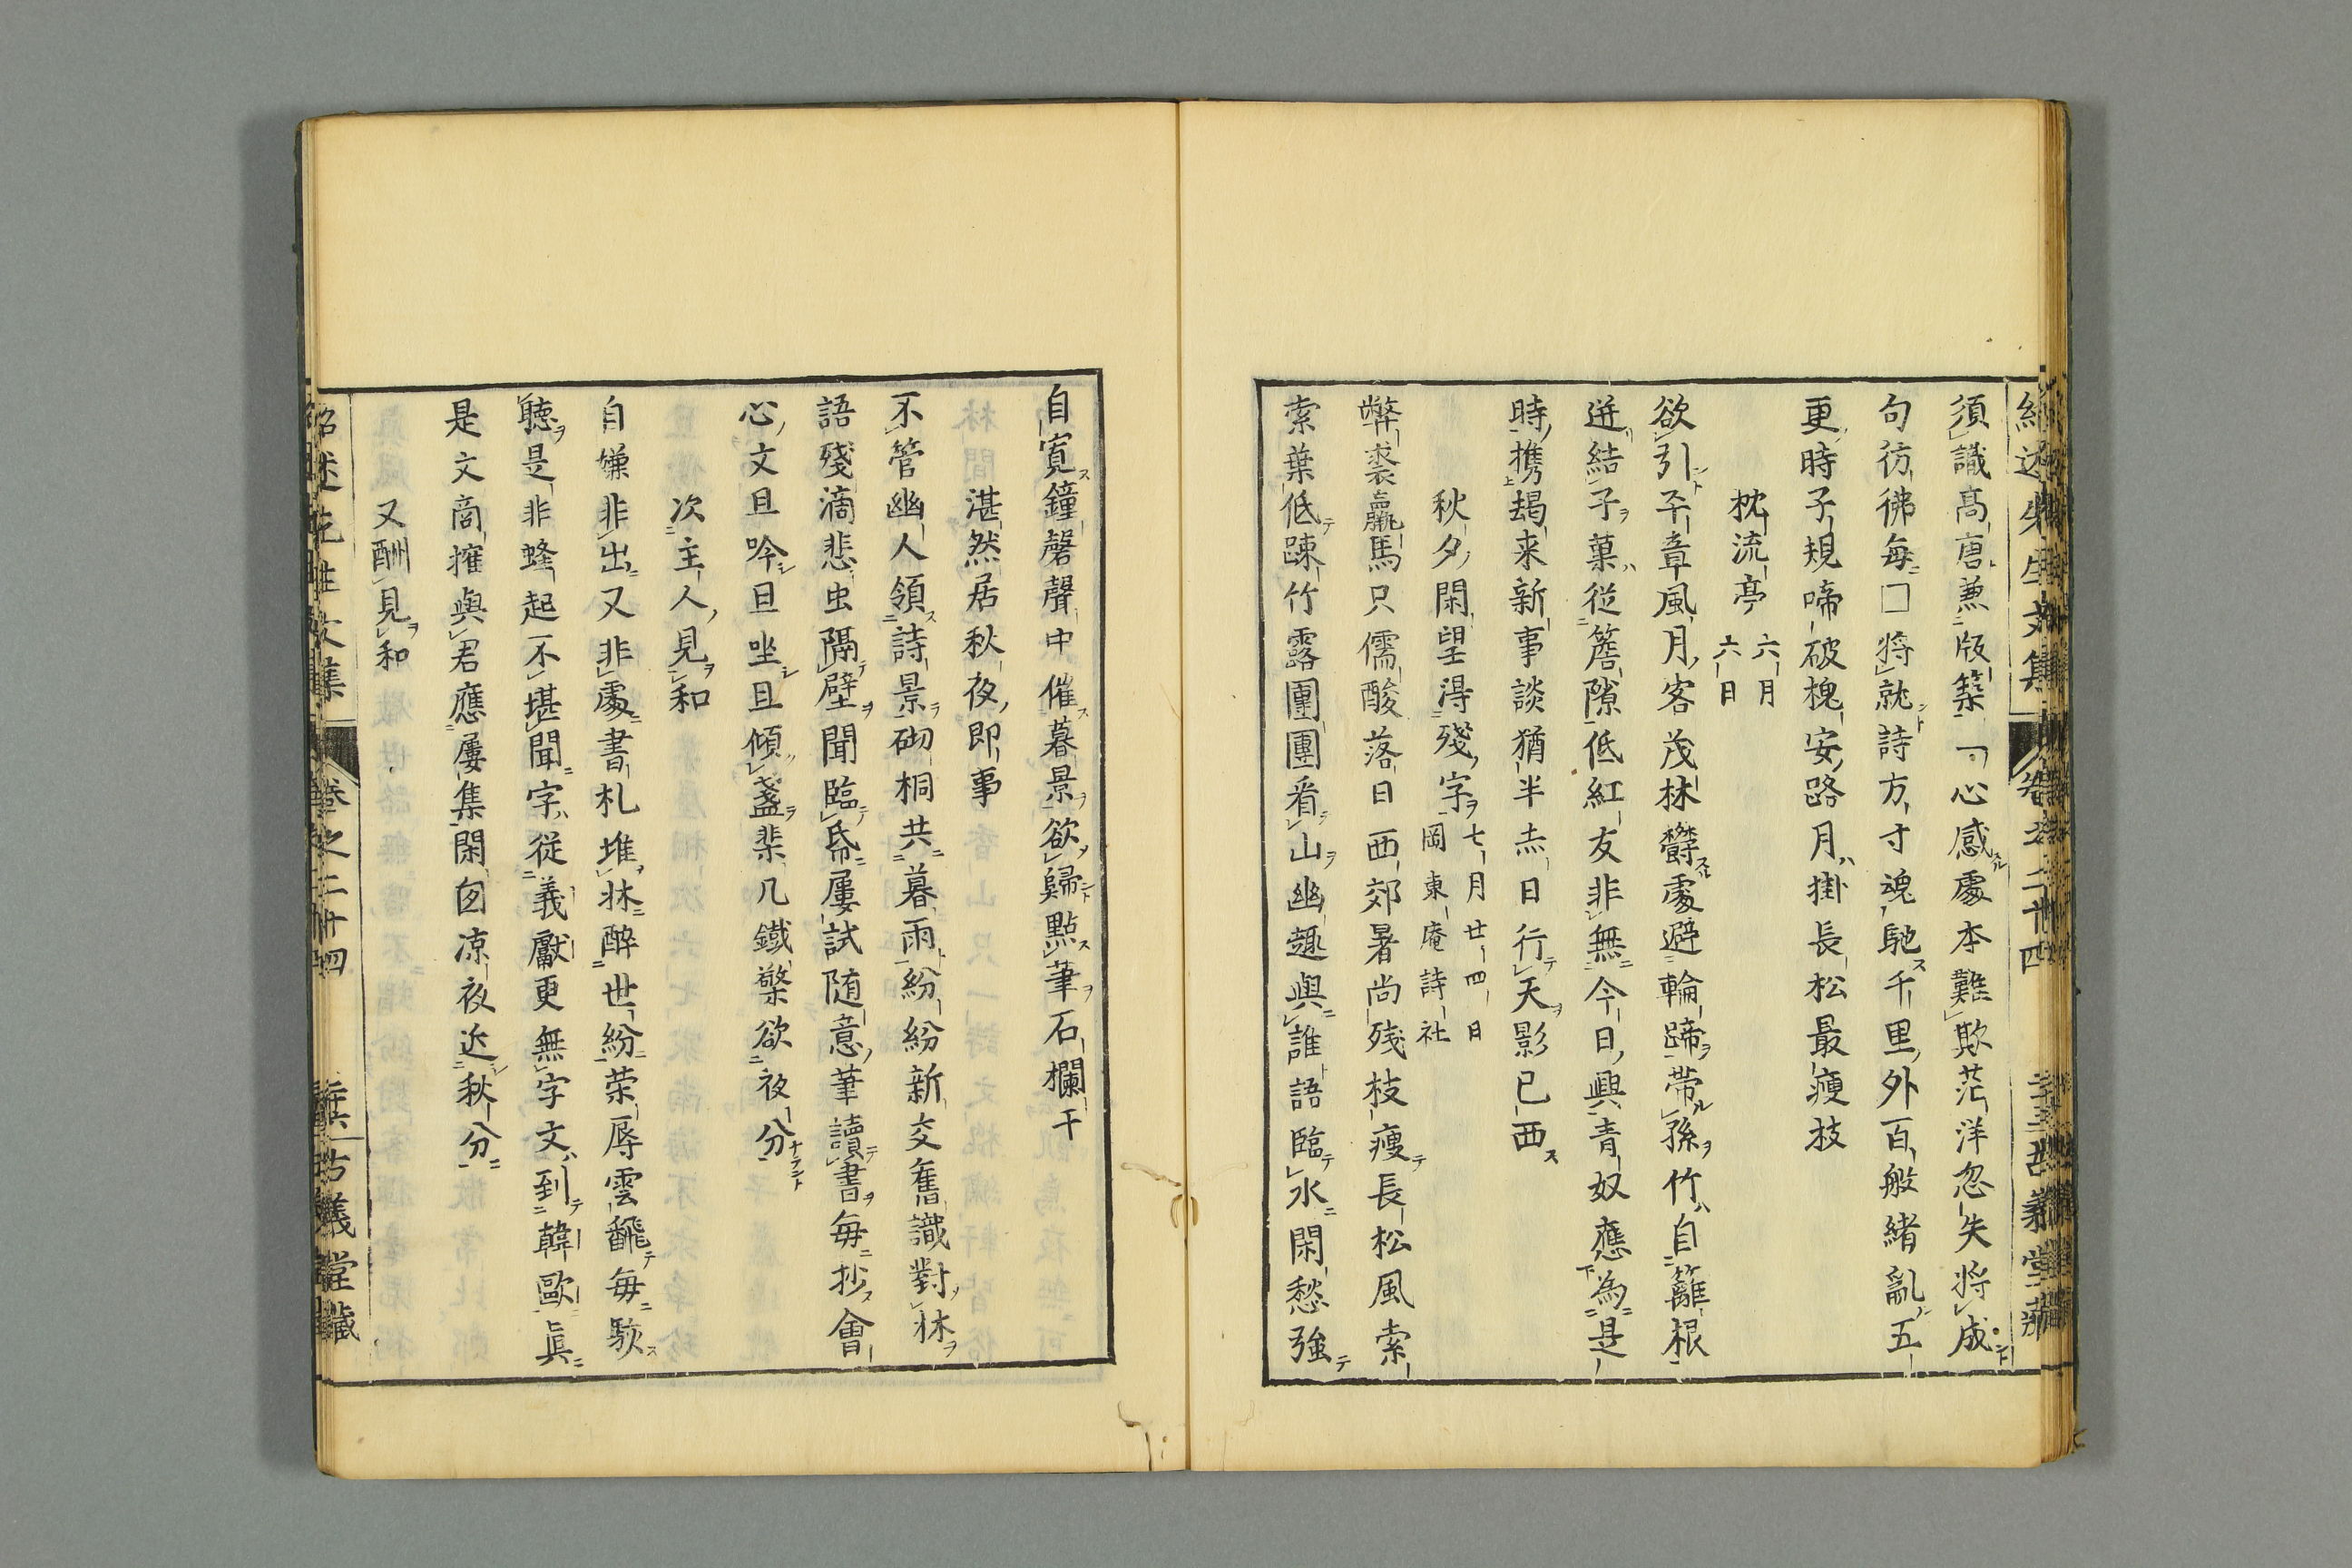 須識高唐兼版築一心感處本難欺茫洋忽失将成
句彷彿每□将就詩方寸魂馳千里外百般緒亂五
更時子規啼破槐安路月掛長松最瘦枝
枕流亭
六月
六日
欲引子章風月客茂林欝處避輪蹄帯孫竹自籬根
迸結子菓從簷隙低紅友非無今日興青奴應為是
時携朅来新事談猶半赤日行天影已西
秋夕閑望得殘字
七月廿四日
岡東庵詩社
弊裘羸馬只儒酸落日西郊暑尚残枝瘦長松風索
索葉低踈竹露團團看山幽趣與誰語臨水閑愁強
自寛鐘磬聲中催暮景欲歸點筆石欄干
湛然居秋夜即事
不管幽人領詩景砌桐共暮雨紛紛新交舊識對牀
語殘滴悲虫隔壁聞臨帋屢試随意筆讀書每抄會
心文且吟且坐且傾盞棐几鐵檠欲夜分
次主人見和
自嫌非出又非處書札堆牀醉世紛荣辱雲飜每歎
聴是非蜂起不堪聞字從義獻更無字文到韓歐眞
是文商搉與君應屢集閑囱凉夜近秋分
又酬見和
紹述先生文集
卷之二十四
古義堂藏